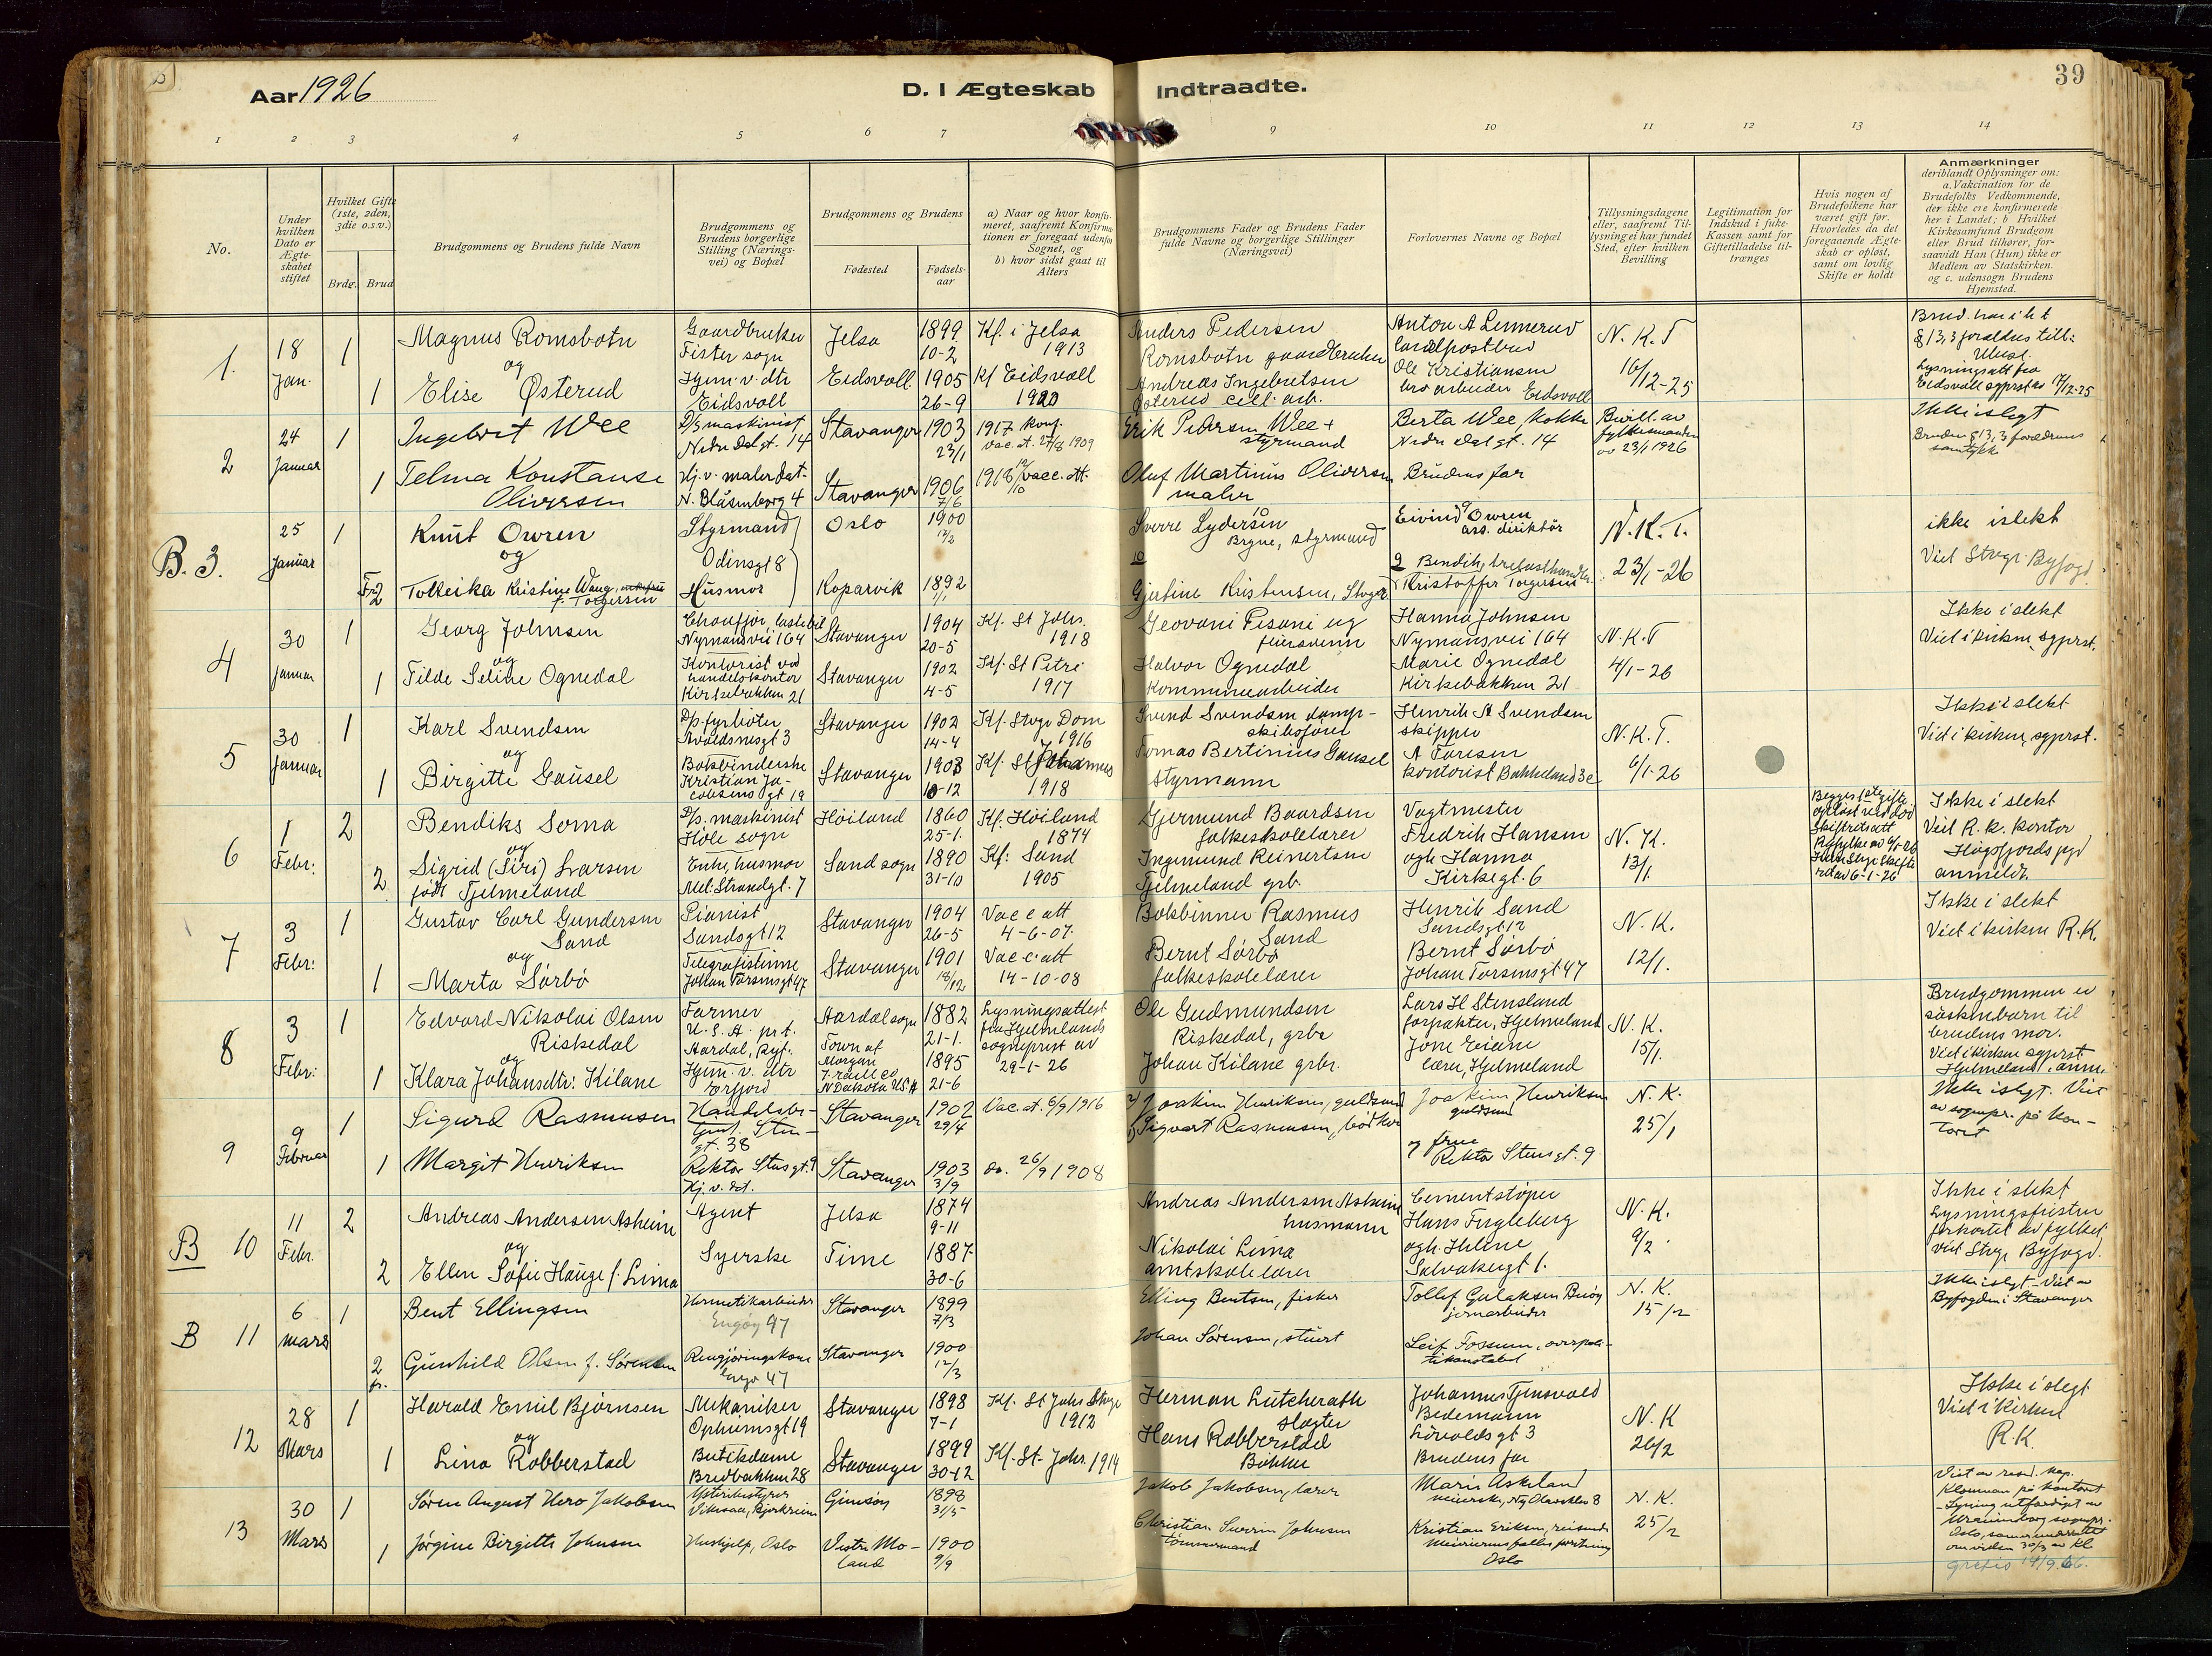 39
Aar 1926
D. I Ægteskab Indtraadte.
1 2 3 4 5 6 7 9 10 11 12 13 14
No.
Under hvilken Dato er Ægteskabet stiftet
Hvilket Gifte (1ste, 2den, 3die o.s.v.)
Brdg. Brud
Brudgommens og Brudens fulde Navn
Brudgommens og Brudens borgerlige Stilling (Næringsvei) og Bopæl
Brudgommens og Brudens
Fødested
Fødselsaar
a) Naar og hvor konfirmeret, saafremt Konfirmationen er foregaat udenfor Sognet, og
b) hvor sidst gaat til Alters
Brudgommens Fader og Brudens Fader fulde Navne og borgerlige Stillinger (Næringsvei)
Forlovernes Navne og Bopæl
Tillysningsdagene eller, saafremt Tillysning ei har fundet Sted, efter hvilken Bevilling
Legitimation for Indskud i fuke-Kassen samt for Giftetilladelse tiltrænges
Hvis nogen af Brudefolkene har været gift før. Hvorledes da det foregaaende Ægteskab er opløst, samt om lovlig Skifte er holdt
Anmærkninger
deriblandt Oplysninger om: a. Vakcination for de Brudefolks Vedkommende, der ikke ere konfirmerede her i Landet; b Hvilket Kirkesamfund Brudgom eller Brud tilhører, forsaavidt Han (Hun) ikke er Medlem av Statskirken. og c. udensogn Brudens Hjemsted.
1. 18 Jan. 1 Magnus Romsbotn
og
1 Elise Østerud
Gaardbruker Fister sogn
Hjem. v. dtr Eidsvoll
Jelsa 1899 10-2 Kf. i Jelsa 1913
Eidsvoll 1905 26-9 Kf Eidsvoll 1920
Anders Pedersen Romsbotn gaardbruker
Andreas Ingebretsen Østerud cell. arb.
Anton A Lennerud landpostbud
Ole Kristiansen bro arbeider Eidsvoll
N. K. T 16/12-25
Lysningsatt fra Eidsvoll sgprst av 17/12-25
2 24 Januar 1 Ingebret Wee
1 Telma Konstanse Oliversen
D/s maskinist Nedre Dal gt. 14
Hj. v. maler dat. N. Blåsenborg 4
Stavanger 1903 23/1 1917 konf. Vac. at. 27/8 1909
Stavanger 1906 7/6
Erik Pedersen Wee + styrmand
Oluf Martinus Oliversen maler
Berta Wee, kokke Nedre Dal gt. 14
Brudens far
Bevill. av fylkesmanden av 23/1 1926
Ikke i slegt
Bruden § 13, 3 forældrenes samtykke
B. 3. 25 Januar 1 Knut Owren
og
Fr. 2 Tolleika Kristine Waug, f. Torgersen
Styrmand
Odinsgt 8
Husmor
Oslo 1900 12/3
Koparvik 1892 1/1
Sverre Lydersen Bryne, styrmand
Gjertine Kristensen, Stvgr.
Eivind Owren ass. direktør
Kristoffer Torgersen
N. K. T. 23/1-26
ikke i slekt
Viet Stvgr. Byfogd
4 30 Januar 1 Georg Johnsen
og
1 Tilde Seline Ognedal
Chauffør, lastebil Nymansvei 164
Kontorist ved handelskontor Kirkebakken 21
Stavanger 1904 20-5 Kf. St Johs. 1918
Stavanger 1902 4-5 Kf. St Petri 1917
Geovani Pisani ug feiersvenn
Halvor Ognedal kommunearbeider
Hanna Johnsen Nymansvei 164
Marie Ognedal Kirkebakken 21
N. K. T 4/1-26
Ikke i slekt
Viet i kirken, sgprst.
5 30 Januar 1 Karl Svendsen
og
1 Birgitte Gausel
D/s. fyrbøter Avaldsnesgt 3
Bokbinderske Kristian Jacobsens gt 19
Stavanger 1902 14-4 Kf. Stvgr Dom 1916
Stavanger 1903 10-12 Kf. St Johannes 1918
Svend Svendsen dampskibsfører
Tomas Bertinius Gausel styrmann
Henrik A Svendsen skipper
A Taresen kontorist Bakkeland 3c
N. K. T. 6/1-26
Ikke i slekt
Viet i kirken, sgprst.
6 1 Febr: 2 Bendiks Soma
og
2 Sigrid (Siri) Larsen født Tjelmeland
D/s. maskinist Hole sogn
Enke, husmor Mel. Strandgt. 7
Høiland 1860 25-1. Kf. Høiland 1874
Sand sogn 1890 31-10 Kf: Sand 1905
Gjermund Baardsen folkeskolelærer
Ingemund Reinertsen Tjelmeland grb.
Vagtmester Fredrik Hansen
og h. Hanna Kirkegt. 6
N. K. 13/1.
Ikke i slekt
Viet R. K. kontor
Høgsfjords pgd anmeldt.
7 3 Febr: 1 Gustav Carl Gundersen Sand
og
1 Marta Sørbø
Pianist Sandsgt 12
Telegrafistinne Johan Torsensgt 47
Stavanger 1904 26-5 Vacc att 4-6-07.
Stavanger 1901 18/12 Vacc. att 14-10-08
Bokbinner Rasmus Sand
Bernt Sørbø folkeskolelærer
Henrik Sand Sandsgt 12
Bernt Sørbø Johan Torsensgt 47
N. K. 12/1.
Ikke i slekt
Viet i kirken R. K.
8 3 Febr: 1 Edvard Nikolai Olsen Riskedal
og
1 Klara Johansdtr: Kilane
Farmer U. S. A. p.t. Aardal, Ryf.
Hjem. v. dtr Erfjord
Aardal sogn 1882 21-1.
Town of Morgan Traill Co N Dakota U.S.A 1895 21-6
Lysningsattest fra Hjelmelands sogneprest av 29-1-26
Ole Gudmundsen Riskedal, grbr
Johan Kilane grbr.
Lars H Stensland forpakter, Hjelmeland
Jone Eiane lærer, Hjelmeland
N. K. 15/1.
Brudgommen er søskenbarn til brudens mor.
Viet i kirken sgprst. Hjelmeland, anm.
9 9 Februar 1 Sigurd Rasmussen
1 Margit Henriksen
Rektor Stensgt. 9 Hj. v. dat.
Stavanger 1902 29/4 Vac. at. 6/9 1916
Stavanger 1903 3/9 do. 26/9 1908
2) Joakim Henriksen, guldsmed
1) Sigvart Rasmussen, bødker
Joakim Henriksen guldsmed
og frue Rektor Stensgt. 9
N. K. 25/1
Ikke i slegt. Viet av sognepr. på kontoret
B 10 11 Febr. 2 Andreas Andersen Asheim
og
2 Ellen Sofie Hauge f. Lima
Agent
Syerske
Jelsa 1874 9-11
Time 1887 30-6
Andreas Andersen Asheim husmann
Nikolai Lima amtskolelærer
Cementstøper Hans Fugleberg
og h. Helene Salvakergt 1.
N. K. 9/2.
Ikke i slekt
Lysningsfristen forkortet av fylket
viet Stvgr Byfogd.
B 11 6 mars 1 Bent Ellingsen
2 fr. Gunhild Olsen f. Sørensen
Hermetikarbeider Engøy 47
Rengjøringskone Engø 47
Stavanger 1899 7/3
Stavanger 1900 12/3
Elling Bentsen, fisker
Johan Sørensen, stuert
Tollef Gulaksen Buøy jernarbeider
Leif Fossum, overpolitikonstabel
N. K. 15/2
Ikke i slegt - Viet av Byfogden i Stavanger
12 28 Mars 1 Harald Emil Bjørnsen
og
1 Lina Robberstad
Mekaniker Ophiimsgt 19
Butikdame Bredbakken 28
Stavanger 1898 7-1 Kf. St Johs Stvgr 1912
Stavanger 1899 30-12 Kf. St. Johs. 1914
Herman Lutcherath slagter
Hans Robberstad Bøkker
Johannes Tjensvold Bedemann Løvoldsgt 3
Brudens far
N. K 26/2
Ikke i slegt
Viet i kirken R. K.
13 30 Mars 1 Søren August Hero Jakobsen
1 Jørgine Birgitte Johnsen
Ysteribestyrer Vikesaa, Bjerkreim
Hushjelp, Oslo
Gimsøy 1898 31/5
Vestre Moland 1900 9/9
Jakob Jakobsen, lærer
Christian Severin Johnsen tømmermand
Marie Askeland meierske, Ny Olavskleiv 8
Kristian Eriksen, reisende Meieriernes fælles forretning Oslo
N. K. 25/2
Viet av resid. kap. Klouman på kontoret - Lysning utferdiget av Uranienborg sognepr. Oslo, som er underrettet om vielsen 30/3 av Kl
gratis 14/9.66.